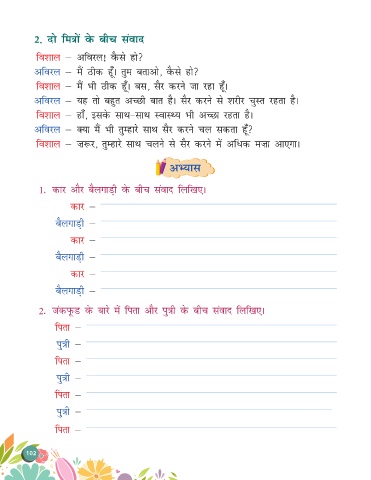 2. दो मित्रों के बीच संवाद
विशाल – अविरल! कैसे हो?
अविरल – मैं ठीक हूँ। तुम बताओ, कैसे हो?
विशाल – मैं भी ठीक हूँ। बस, सैर करने जा रहा हूँ।
अविरल – यह तो बहुत अच्छी बात है। सैर करने से शरीर चुस्त रहता है।
विशाल – हाँ, इसके साथ-साथ स्वास्थ्य भी अच्छा रहता है।
अविरल – क्या मैं भी तुम्हारे साथ सैर करने चल सकता हूँ?
विशाल – ज़रूर, तुम्हारे साथ चलने से सैर करने में अधिक मजा आएगा।
अभ्यास
1. कार और बैलगाड़ी के बीच संवाद लिखिए।
कार –
बैलगाड़ी –
कार –
बैलगाड़ी –
कार –
बैलगाड़ी –
2. जंकफूड के बारे में पिता और पुत्री के बीच संवाद लिखिए।
पिता –
पुत्री –
पिता –
पुत्री –
पिता –
पुत्री –
पिता –
102